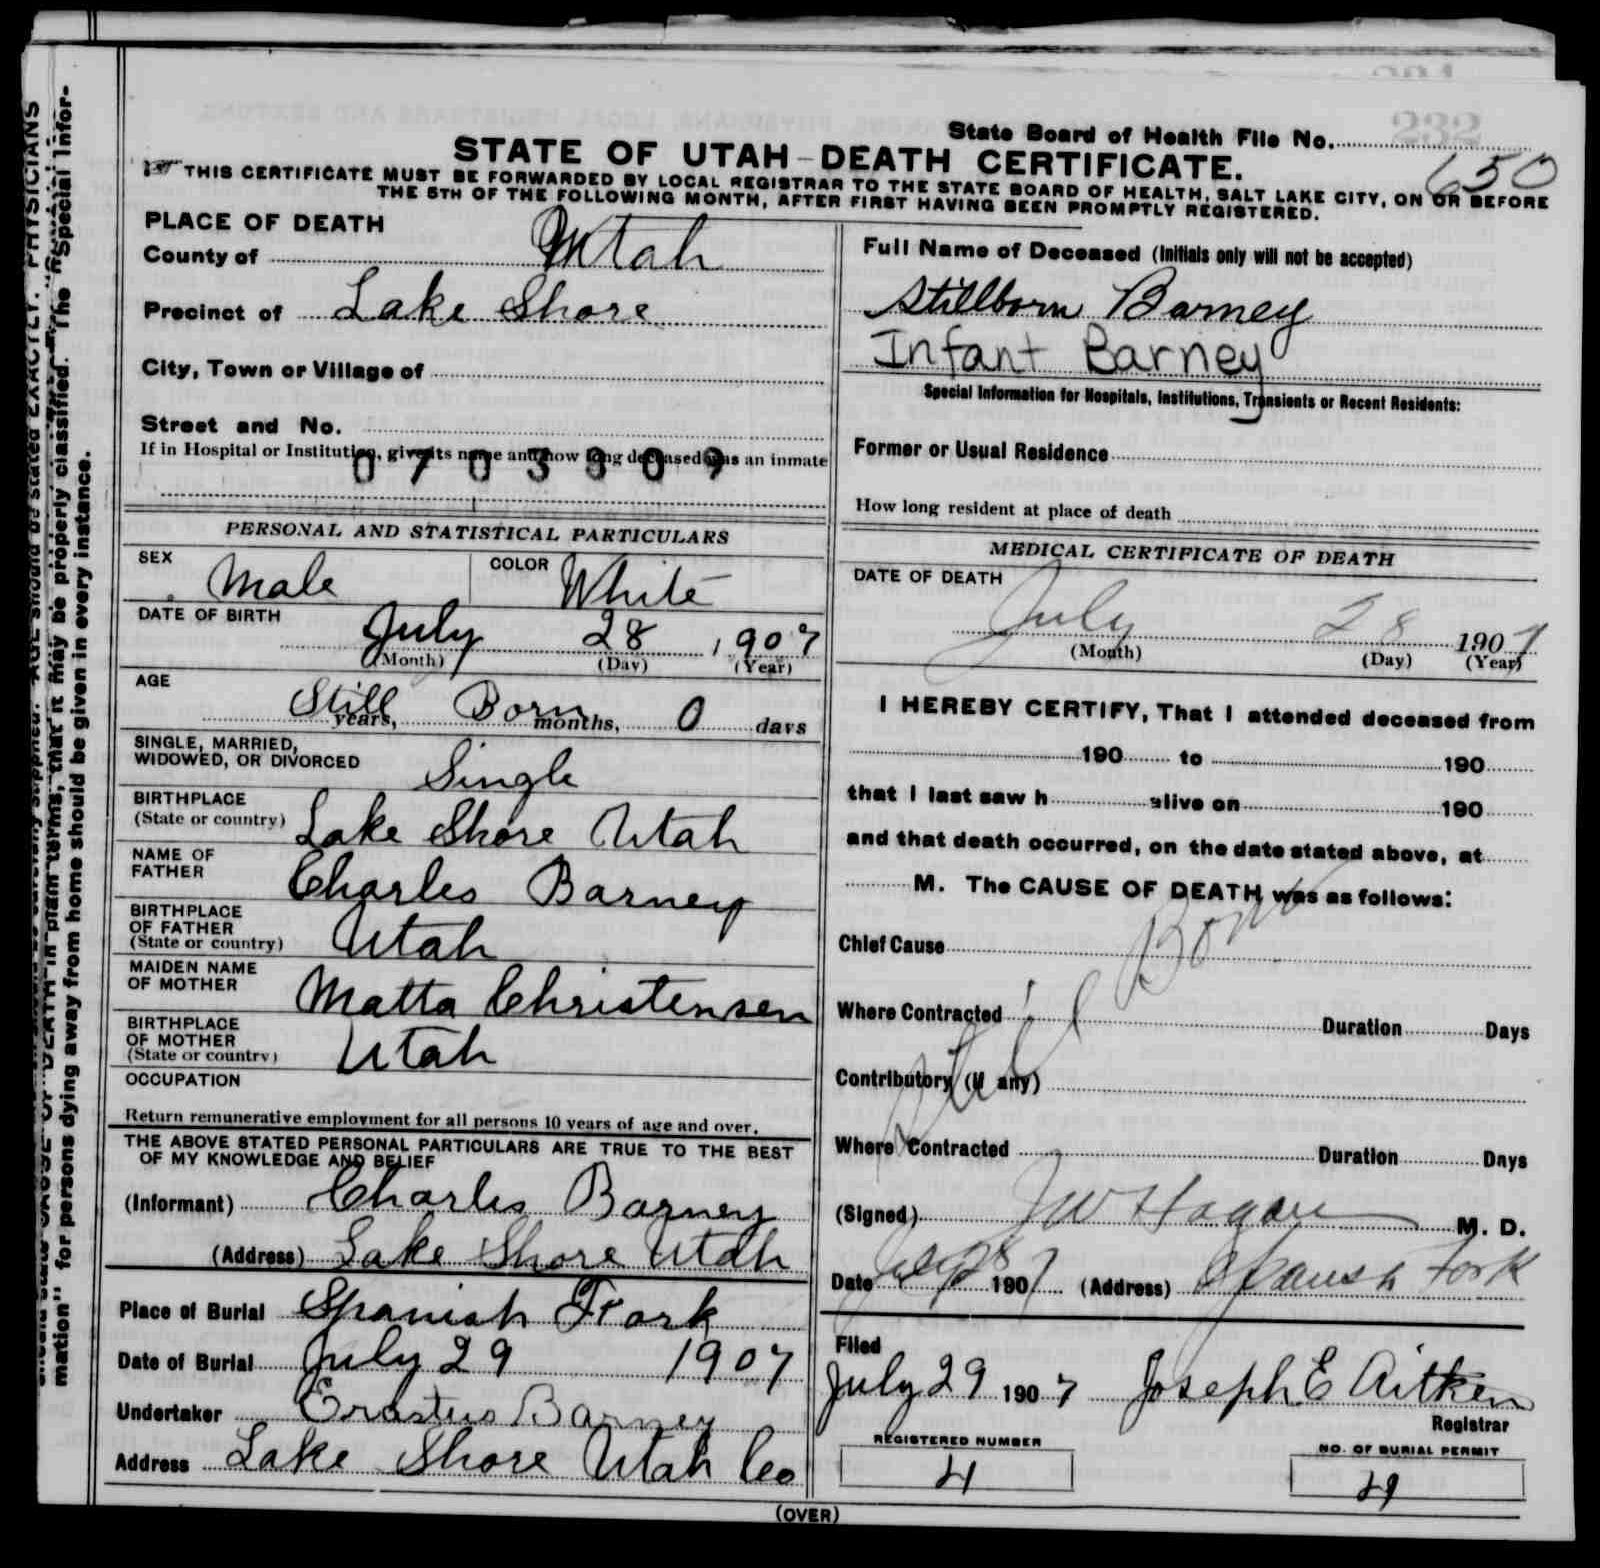 232
State Board of Health File No.
650
STATE OF UTAH-DEATH CERTIFICATE.
THIS CERTIFICATE MUST BE FORWARDED BY LOCAL REGISTRAR TO THE STATE BOARD OF HEALTH, SALT LAKE CITY, ON OR BEFORE
THE 5TH OF THE FOLLOWING MONTH, AFTER FIRST HAVING BEEN PROMPTLY REGISTERED.
PLACE OF DEATH
County of Utah
Precinct of Lake Shore
City, Town or Village of
Street and No.
If in Hospital or Institution, give its name and how long deceased was an inmate
0703309
PERSONAL AND STATISTICAL PARTICULARS
SEX Male COLOR White
DATE OF BIRTH
July 28, 1907
(Month) (Day) (Year)
AGE
Still years, Born months, 0 days
SINGLE, MARRIED,
WIDOWED, OR DIVORCED Single
BIRTHPLACE
(State or country) Lake Shore Utah
NAME OF
FATHER Charles Barney
BIRTHPLACE
OF FATHER
(State or country) Utah
MAIDEN NAME
OF MOTHER Matta Christensen
BIRTHPLACE
OF MOTHER
(State or country) Utah
OCCUPATION
Return remunerative employment for all persons 10 years of age and over.
THE ABOVE STATED PERSONAL PARTICULARS ARE TRUE TO THE BEST
OF MY KNOWLEDGE AND BELIEF
(Informant) Charles Barney
(Address) Lake Shore Utah
Place of Burial Spanish Fork
Date of Burial July 29 1907
Undertaker Erastus Barney
Address Lake Shore Utah Co
Full Name of Deceased (Initials only will not be accepted)
Stillborn Barney
Infant Barney
Special Information for Hospitals, Institutions, Transients or Recent Residents:
Former or Usual Residence
How long resident at place of death
MEDICAL CERTIFICATE OF DEATH
DATE OF DEATH
July 28 1907
(Month) (Day) (Year)
I HEREBY CERTIFY, That I attended deceased from
190 to 190
that I last saw h alive on 190
and that death occurred, on the date stated above, at
M. The CAUSE OF DEATH was as follows:
Still Born
Chief Cause
Where Contracted Duration Days
Contributory (if any)
Where Contracted Duration Days
(Signed) J W Hagan M. D.
Date July 28 1907 (Address) Spanish Fork
Filed
July 29 1907 Joseph E Aitken
Registrar
REGISTERED NUMBER
4
NO. OF BURIAL PERMIT
4
(OVER)
AGE should be stated EXACTLY. PHYSICIANS
DEATH in plain terms, that it may be properly classified. The "Special Infor-
mation" for persons dying away from home should be given in every instance.